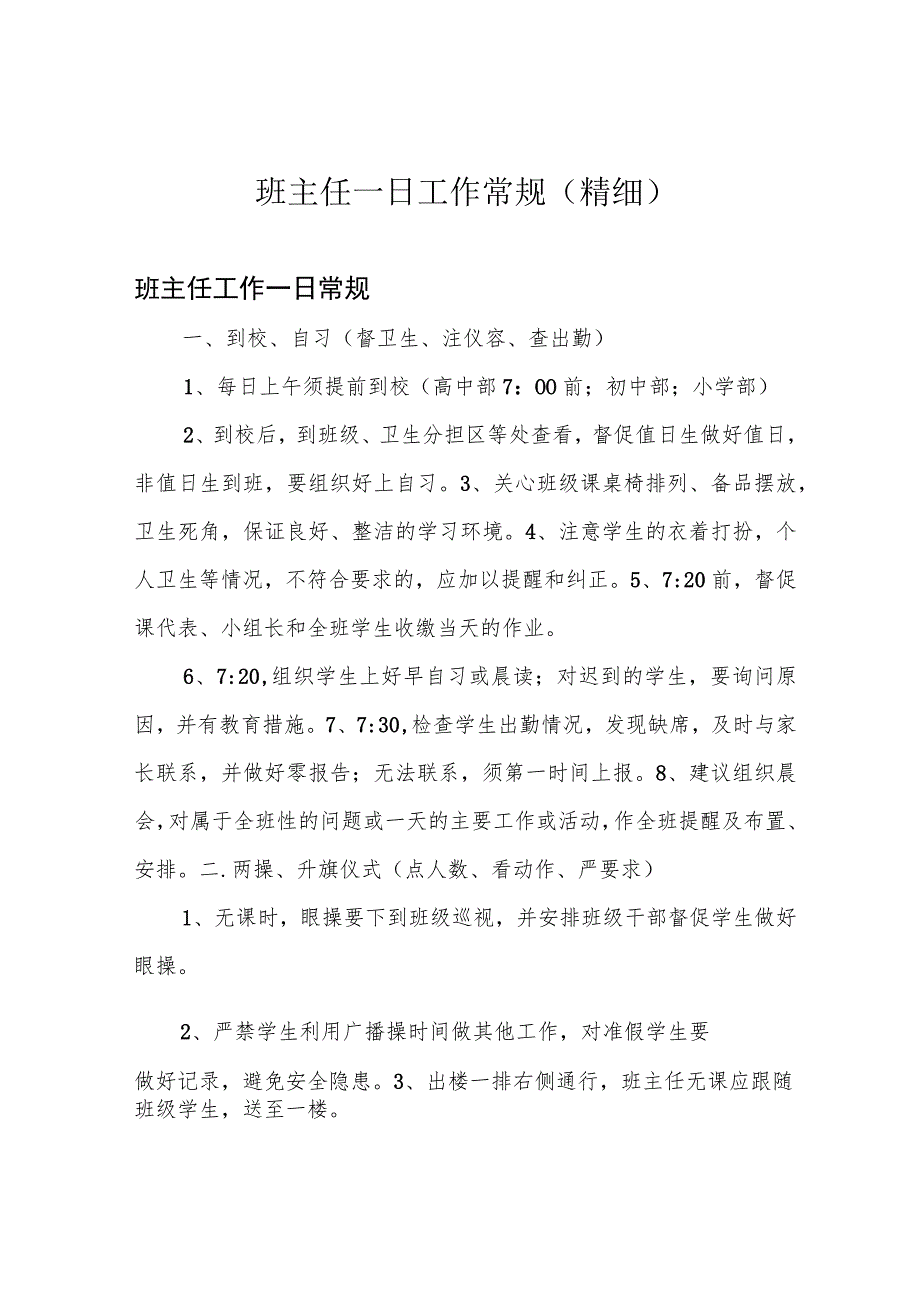 班主任一日工作常规（精细）
班主任工作一日常规
一、到校、自习（督卫生、注仪容、查出勤）
1、每日上午须提前到校（高中部7：00前；初中部；小学部）
2、到校后，到班级、卫生分担区等处查看，督促值日生做好值日，
非值日生到班，要组织好上自习。3、关心班级课桌椅排列、备品摆放，
卫生死角，保证良好、整洁的学习环境。4、注意学生的衣着打扮，个
人卫生等情况，不符合要求的，应加以提醒和纠正。5、7:20前，督促
课代表、小组长和全班学生收缴当天的作业。
6、7:20,组织学生上好早自习或晨读；对迟到的学生，要询问原
因，并有教育措施。7、7:30,检查学生出勤情况，发现缺席，及时与家
长联系，并做好零报告；无法联系，须第一时间上报。8、建议组织晨
会,对属于全班性的问题或一天的主要工作或活动,作全班提醒及布置、
安排。二.两操、升旗仪式（点人数、看动作、严要求）
1、无课时，眼操要下到班级巡视，并安排班级干部督促学生做好
眼操。
2、严禁学生利用广播操时间做其他工作，对准假学生要
做好记录，避免安全隐患。3、出楼一排右侧通行，班主任无课应跟随
班级学生，送至一楼。